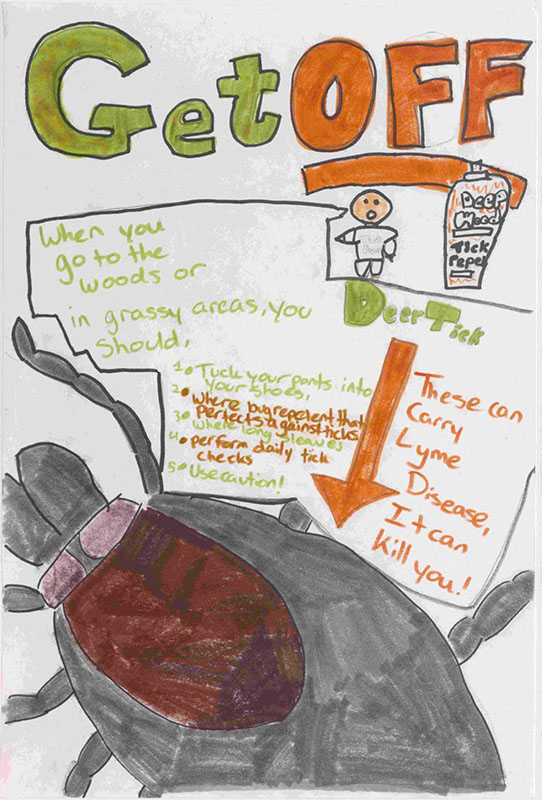 Get OFF
Deep
Woods
Tick
Repel
When you
go to the
woods or
in grassy areas, you
should,
1. Tuck your pants into
your shoes,
2. where bug repelent that
pertects against ticks
3. where long sleaves
4. perform daily tick
checks
5. Use caution!
Deer Tick
These can
Carry
Lyme
Disease,
It can
Kill you!